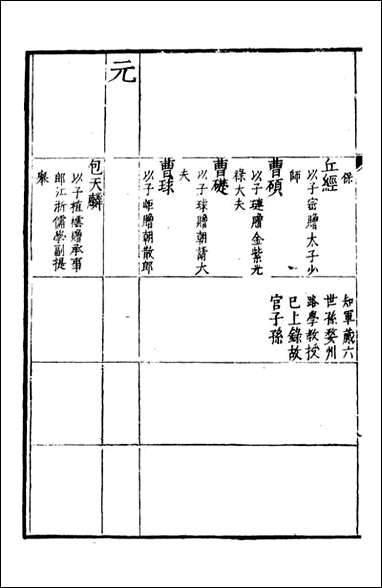 保
丘經
以子密贈太子少
師
曹碩
以子璉贈金紫光
祿大夫
曹礎
以子球贈朝請大
夫
曹球
以子㟁贈朝散郎
知軍蕆六
世孫婺州
路學教授
已上錄故
官子孫
元
包天麟
以子植贈承事
郎江浙儒學副提
舉